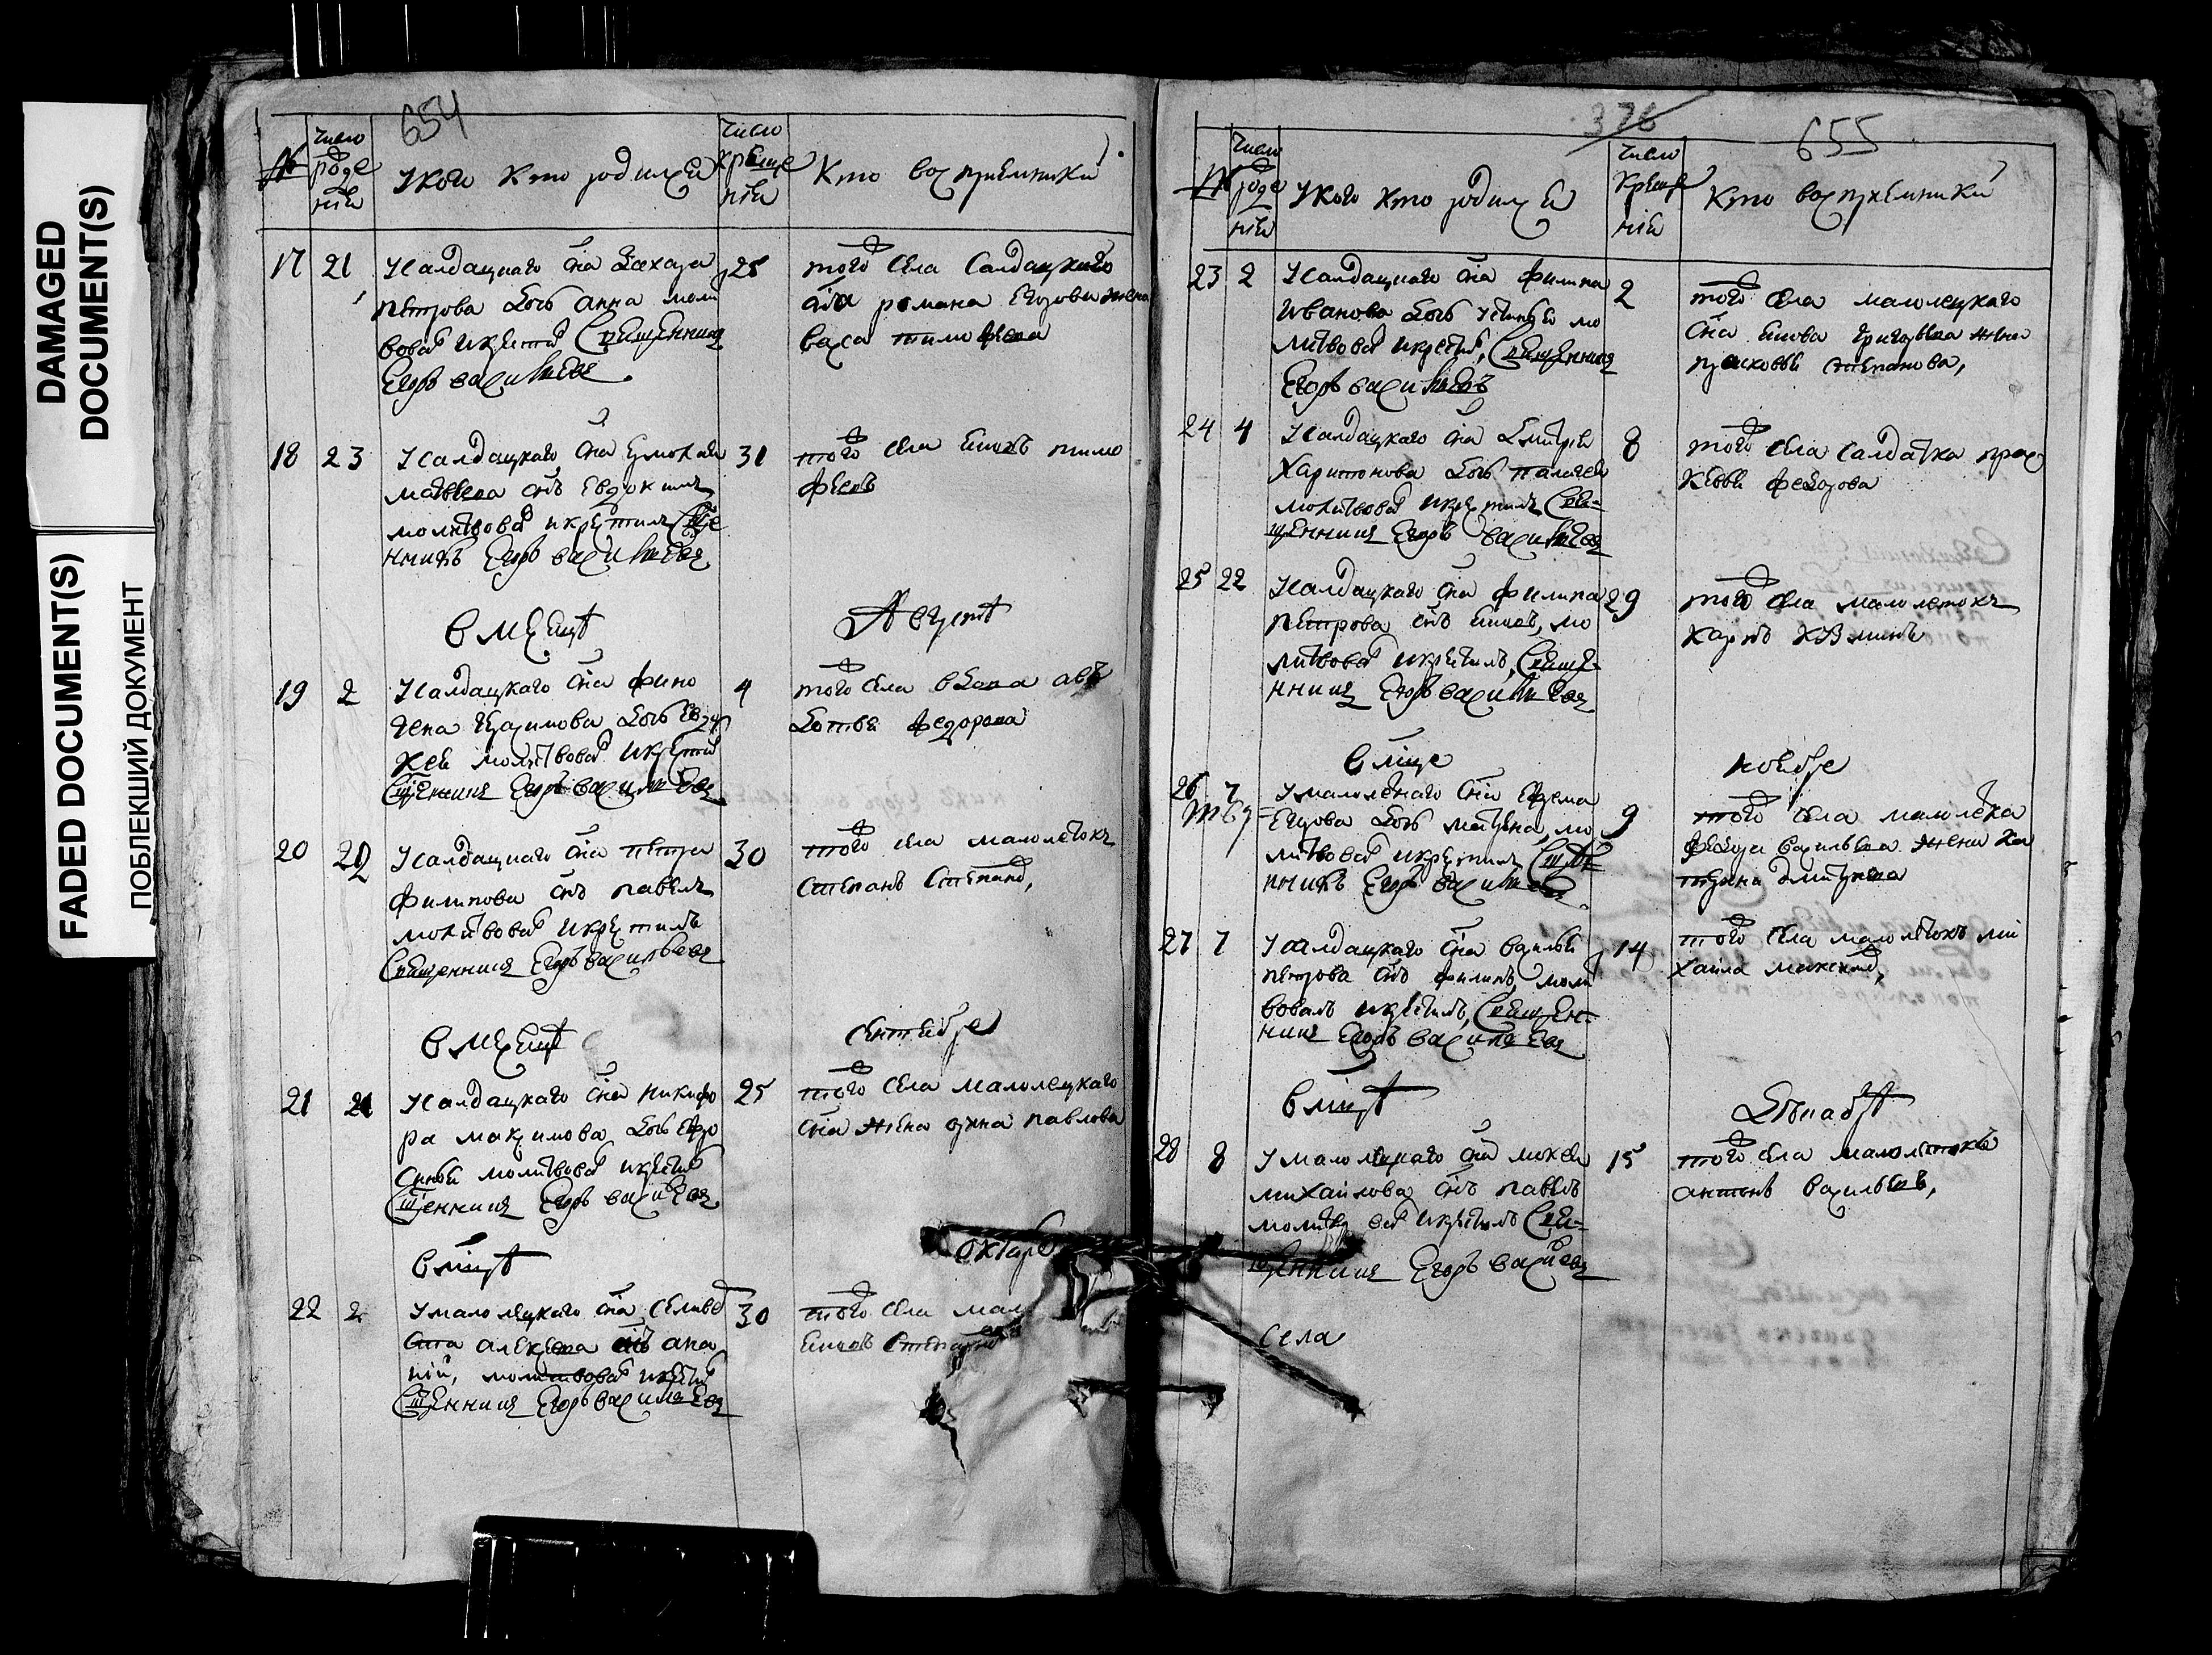 DAMAGED
DOCUMENT(S)
FADED DOCUMENT(S)
ПОБЛЕКШИЙ ДОКУМЕНТ
654
№
число
роде
нiя
У кого кто родился
число
креще
нiя
Кто восприемники
17 21
У салдацкаго сна Захара
Петрова дочь Анна моли
вовал и крести Священникъ
Егоръ Васильевъ
25
того села Салдацкаго
сна романа Егорова жена
Васа тимофеева
18 23
У салдацкаго сна
матвеева снъ Евдокимъ
молитвовал и крестилъ Сще
нникъ Егоръ Васильевъ
31
того села Яковъ тимо
феевъ
в месяце
Августе
19 2
У салдацкаго сна фино
гена Герасимова дочь Евдо
кея молитвовал и крести
Сщенникъ Егоръ Васильевъ
4
того села вдова авъ
дотья федорова
20 29
У салдацкаго сна петра
филипова снъ павелъ
молитвовал и крестилъ
Священникъ Егоръ Васильевъ
30
того села малолетокъ
Степанъ Степанов,
в месяце
Сентябре
21 21
У салдацкаго сна Никифо
ра максимова дочь Ефро
синья молитвовал и крестил
Сщенникъ Егоръ Васильевъ
25
того села малолецкаго
сна жена павлова
в мсце
Октябре
22 2
У малолецкаго сна Селивер
ста алексеева снъ ана
нiй, молитвовал и крестил
Сщенникъ Егоръ Васильевъ
30
того села мал
Яковъ Степанов
376
655
№
число
роде
нiя
У кого кто родился
число
креще
нiя
Кто восприемники
23 2
У салдацкаго сна филипа
Иванова дочь Устинья мо
литвовал и крестил, Священникъ
Егоръ Васильевъ
2
того села малолецкаго
сна Якова Григорьева жена
прасковья степанова,
24 4
У салдацкаго сна Дмитрея
Харитонова дочь палагея
молитвовал и крестилъ Свя-
щенникъ Егоръ Васильевъ
8
того села салдатка прас
ковья федорова
25 22
У салдацкаго сна филипа
Петрова снъ Яковъ, мо
литвовал и крестилъ, Священ-
нникъ Егоръ Васильевъ
29
того села малолетокъ
Карпъ Кузминъ
в мсце
ноябре
26 7
У малолетнаго сна Ефрема
Егорова дочь матрена, мо
литвовал и крестилъ Сщен
нникъ Егоръ Васильевъ
9
того села малолетка
федора васильева жена ка
терина дмитреева
27 7
У салдацкаго сна Василья
петрова снъ филипъ, моли
вовалъ и крестилъ, Священ-
никъ Егоръ Васильевъ
14
того села малолетокъ ми
хаила
в мсце
Декабре
28 8
У малолецкаго сна мокея
михаилова снъ павелъ
молитвовал и крестилъ Свя-
щенникъ Егоръ Васильевъ
15
того села малолетокъ
антонъ васильевъ,
Села